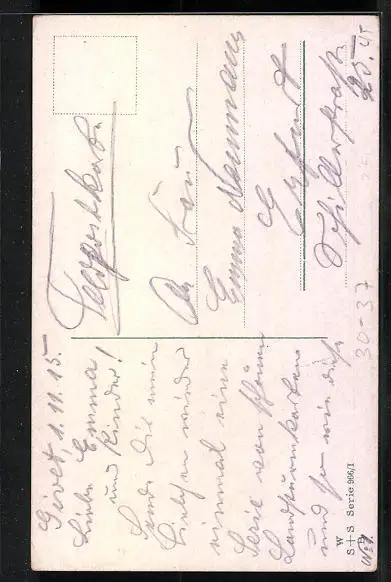 Feldpostkarte
An Frau
Emma Neumann
Erfurt
Schillerstraße
Givet, 1. 11. 15.
Liebe Emma
und Kinder!
Sende Dir mein
Lieb
wieder
einmal eine
Serie von schönen
Landsturmkarten
und
wie
30-37
W
S+S Serie 966/1
No 1.